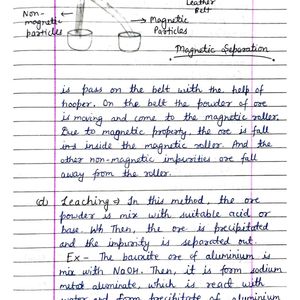 Leather
Belt
Non-
magnetic
particles
Magnetic
Particles
Magnetic Separation
is pass on the belt with the help of
hooper. On the belt the powder of ore
is moving and come to the magnetic roller.
Due to magnetic property, the ore is fall
ins inside the magnetic roller. And the
other non-magnetic impurities are fall
away from the roller.
(d) Leaching => In this method, the ore
powder is mix with suitable acid or
base. Wh Then, the ore is precipitated
and the impurity is separated out.
Ex - The bauxite ore of aluminium is
mix with NaOH. Then, it is form sodium
aluminate, which is react with
water and form precipitate of aluminium